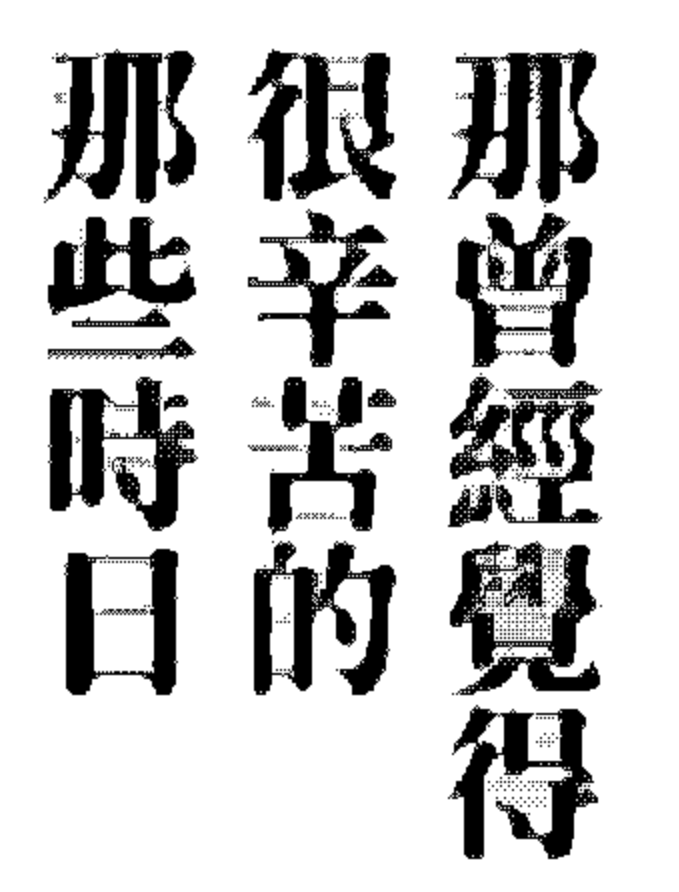 那曾經覺得
很辛苦的
那些時日